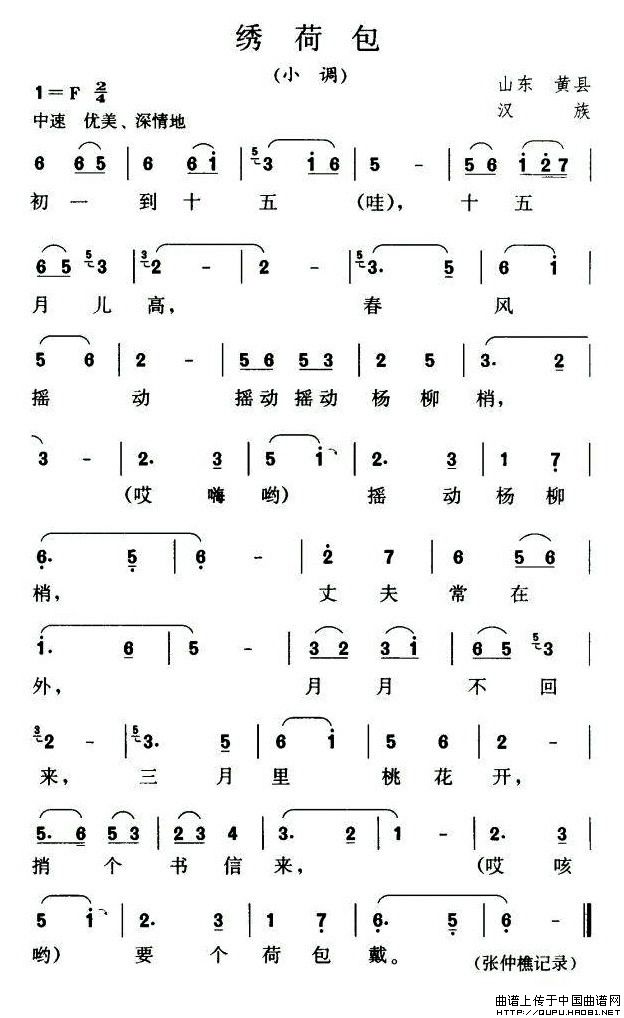 绣荷包
(小调)
1=F 2/4
山东 黄县
中速 优美、深情地
汉族
6 65 | 6 6i | 53 i6 | 5 - | 56 i27 |
初一到十五(哇),十五
65 53 | 32 - | 2 - | 53. 5 | 6 i |
月儿高,春风
5 6 | 2 - | 56 53 | 2 5 | 3. 2 |
摇动摇动摇动杨柳梢,
3 - | 2. 3 | 5 i | 2. 3 | 1 7 |
(哎嗨哟)摇动杨柳
6. 5 | 6 - | 2 7 | 6 56 |
梢,丈夫常在
i. 6 | 5 - | 32 3i | 65 53 |
外,月月不回
32 - | 53. 5 | 6 i | 5 6 | 2 - |
来,三月里桃花开,
5. 6 53 | 23 4 | 3. 2 | 1 - | 2. 3 |
捎个书信来,(哎咳
5 i | 2. 3 | 1 7 | 6. 5 | 6 - ‖
哟)要个荷包戴。
(张仲樵记录)
曲谱上传于中国曲谱网
HTTP://QUPU.HAO81.NET